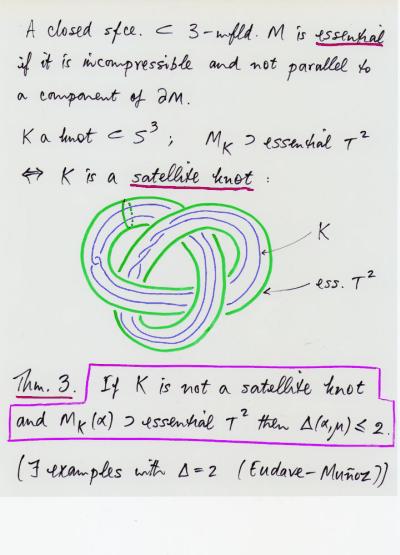 A closed sfce. ⊂ 3-mfld. M is essential
if it is incompressible and not parallel to
a component of ∂M.
K a knot ⊂ S³ ; M_K ⊃ essential T²
⇔ K is a satellite knot :
K
ess. T²
Thm. 3. If K is not a satellite knot
and M_K(α) ⊃ essential T² then Δ(α,μ) ≤ 2.
(∃ examples with Δ = 2 (Eudave-Muñoz))